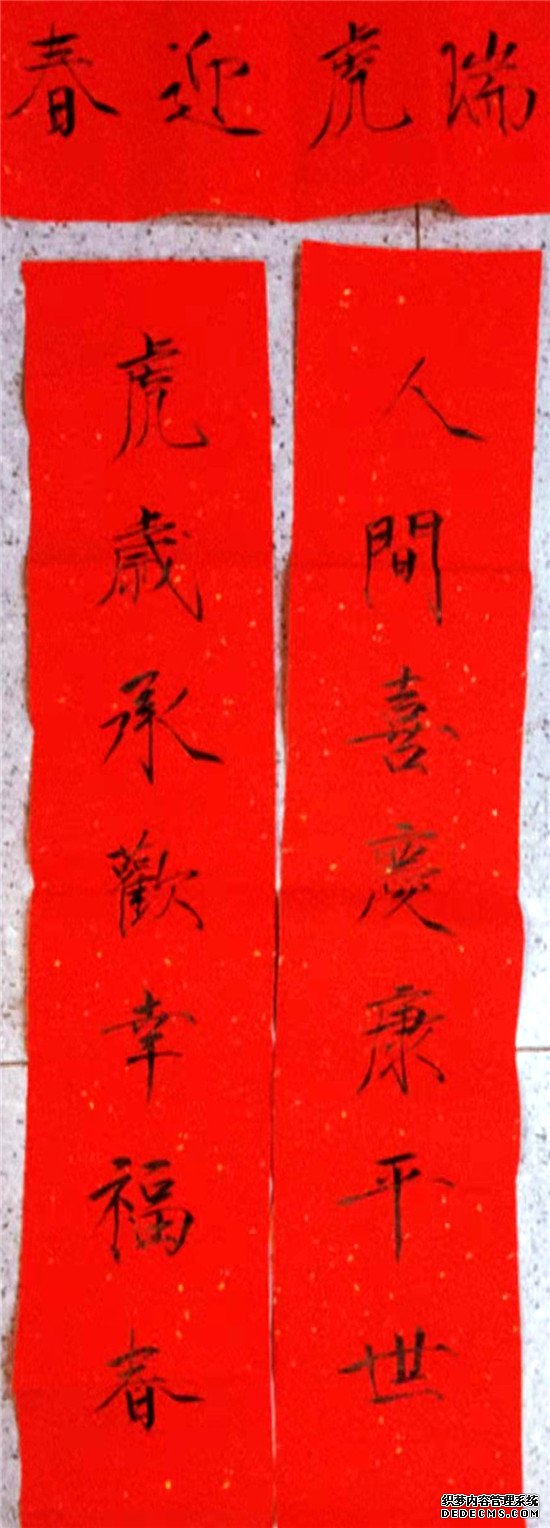 瑞虎迎春
人間喜慶康平世
虎歲承歡幸福春
织梦内容管理系统
DEDECMS.COM